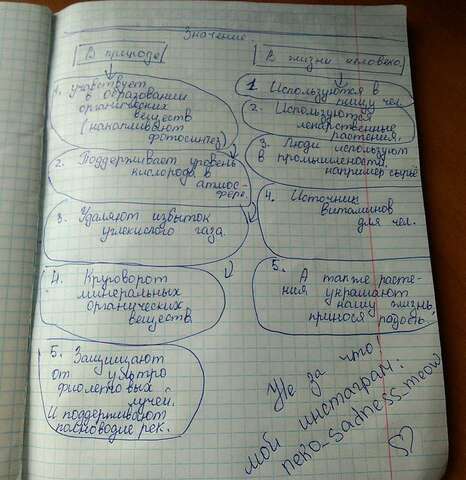 Значение
В природе
1. Участвует
в образовании
органических
веществ
(накапливают
фотосинтез)
2. Поддерживает уровень
кислорода в
атмос-
фере
3. Удаляют избыток
углекислого газа.
4. Круговорот
минеральных
органических
веществ
5. Защищают
от ультро
фиолетовых
лучей.
И поддерживают
полноводие рек.
В жизни человека
1. Используются в
пищу чел.
2. Используются
лекарственные
растения.
3. Люди используют
в промышлености,
например сырьё
4. Источник
витаминов
для чел.
5. А также расте-
ния украшают
нашу жизнь,
принося радость.
Не за что!
мой инстаграм:
neko_sadness_meow